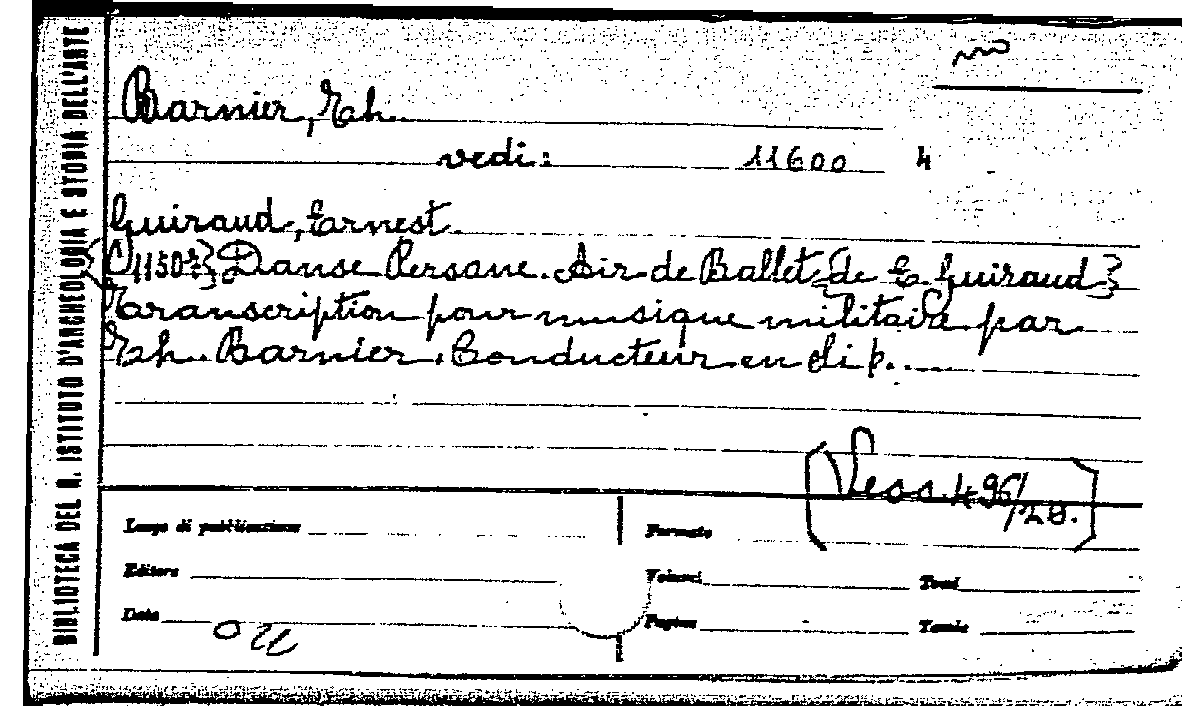 BIBLIOTECA DEL R. ISTITUTO D'ARCHEOLOGIA E STORIA DELL'ARTE
ms
Barnier, Th.
vedi: 11600 4
Guiraud, Ernest.
Danse Persane. Air de Ballet de E. Guiraud}
Transcription pour musique militaire par
Th. Barnier. Conducteur en dip....
[Vess. 496/28.]
Luogo di pubblicazione
Formato
Editore
Volumi
Tomi
Data
Pagine
Tavole